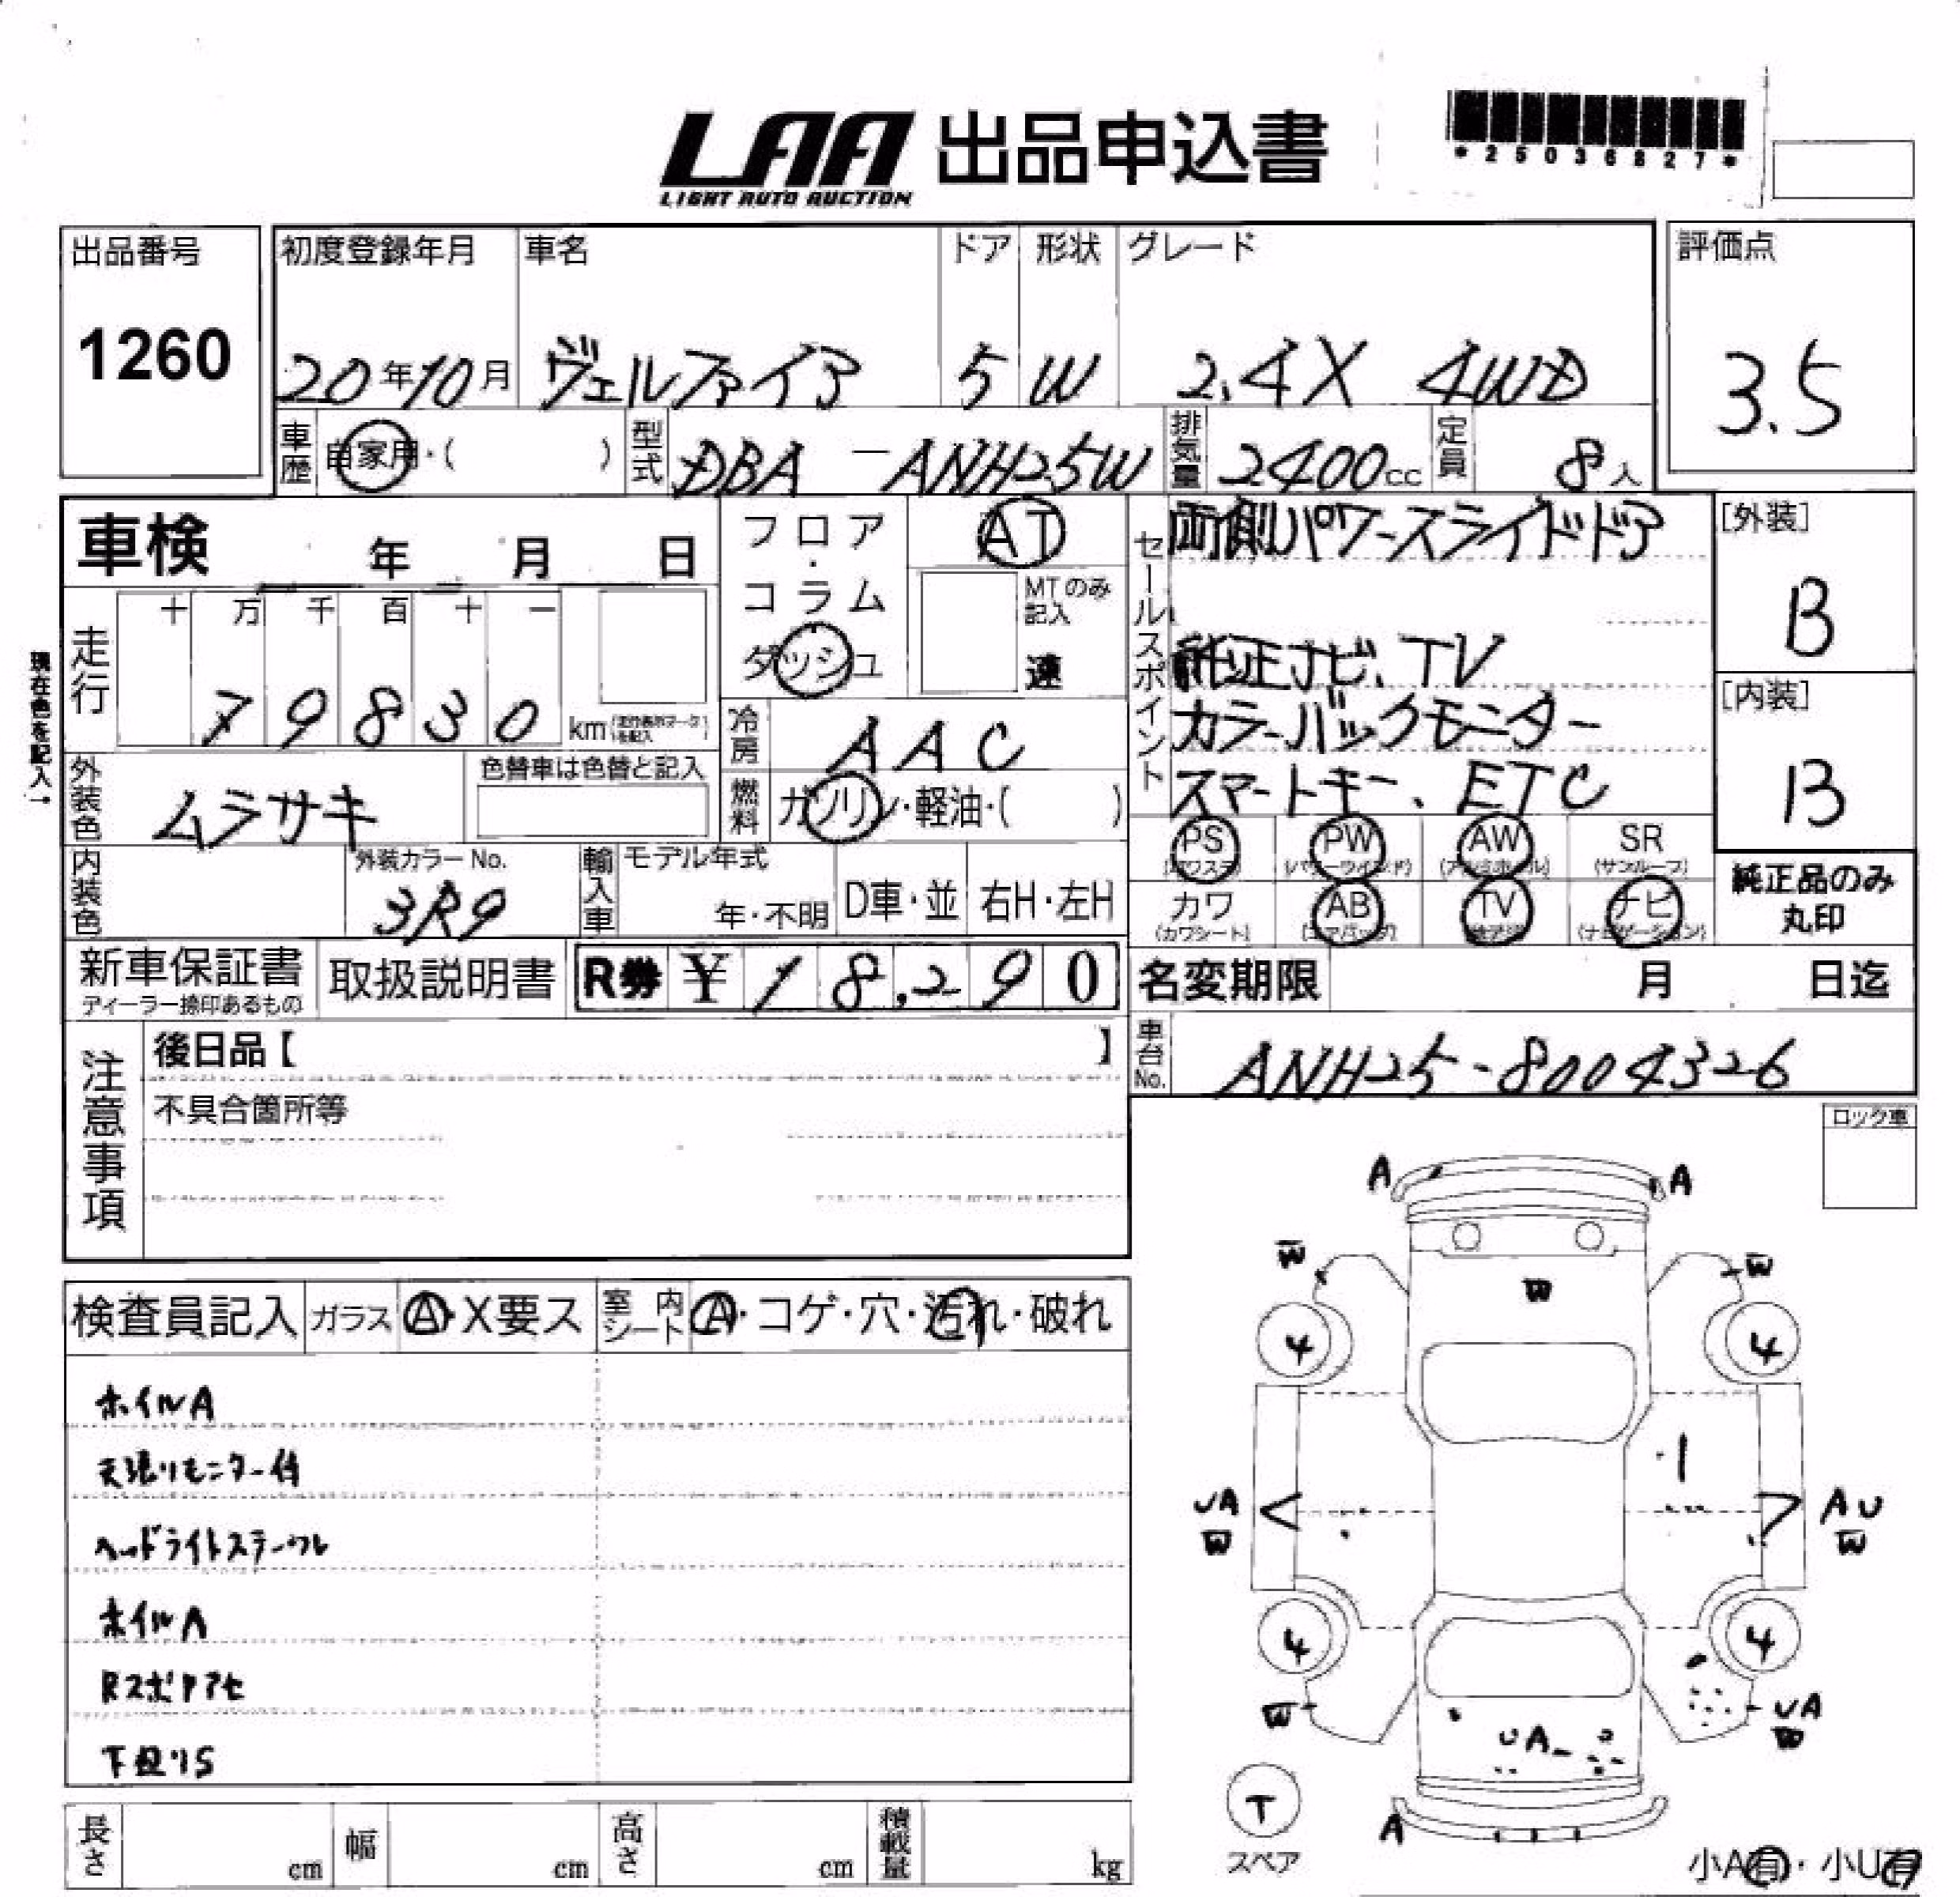 LAA 出品申込書
LIGHT AUTO AUCTION
*25036827*
出品番号
1260
初度登録年月
20年10月
車名
ヴェルファイア
ドア
5
形状
W
グレード
2.4X 4WD
評価点
3.5
車歴
自家用・( )
型式
DBA-ANH25W
排気量
2400cc
定員
8人
車検 年 月 日
フロア・コラム
ダッシュ
AT
MTのみ記入
速
セールスポイント
両側パワースライドドア
純正ナビ、TV
カラーバックモニター
スマートキー、ETC
[外装]
B
[内装]
B
現在色を記入→
走行
十万千百十一
79830
km
冷房
AAC
燃料
ガソリン・軽油・( )
外装色
ムラサキ
色替車は色替と記入
内装色
外装カラーNo.
3R9
輸入車
モデル年式
年・不明
D車・並
右H・左H
PS
(パワステ)
PW
(パワーウインド)
AW
(アルミホイル)
SR
(サンルーフ)
カワ
(カワシート)
AB
(エアバッグ)
TV
ナビ
(ナビゲーション)
純正品のみ
丸印
新車保証書
ディーラー捺印あるもの
取扱説明書
R券 ¥18,290
名変期限 月 日迄
車台No.
ANH25-8004326
注意事項
後日品【 】
不具合箇所等
ロック車
検査員記入
ガラス
A・X要ス
室内シート
A・コゲ・穴・汚れ・破れ
ホイルA
天張りモニター付
ヘッドライトステーワレ
ホイルA
Rスポアセ
下廻りS
A A
W W
W
4 4
UA
W
AU
W
4 4
W
UA
W
UA
A
T
スペア
小A有・小U有
長さ cm
幅 cm
高さ cm
積載量 kg